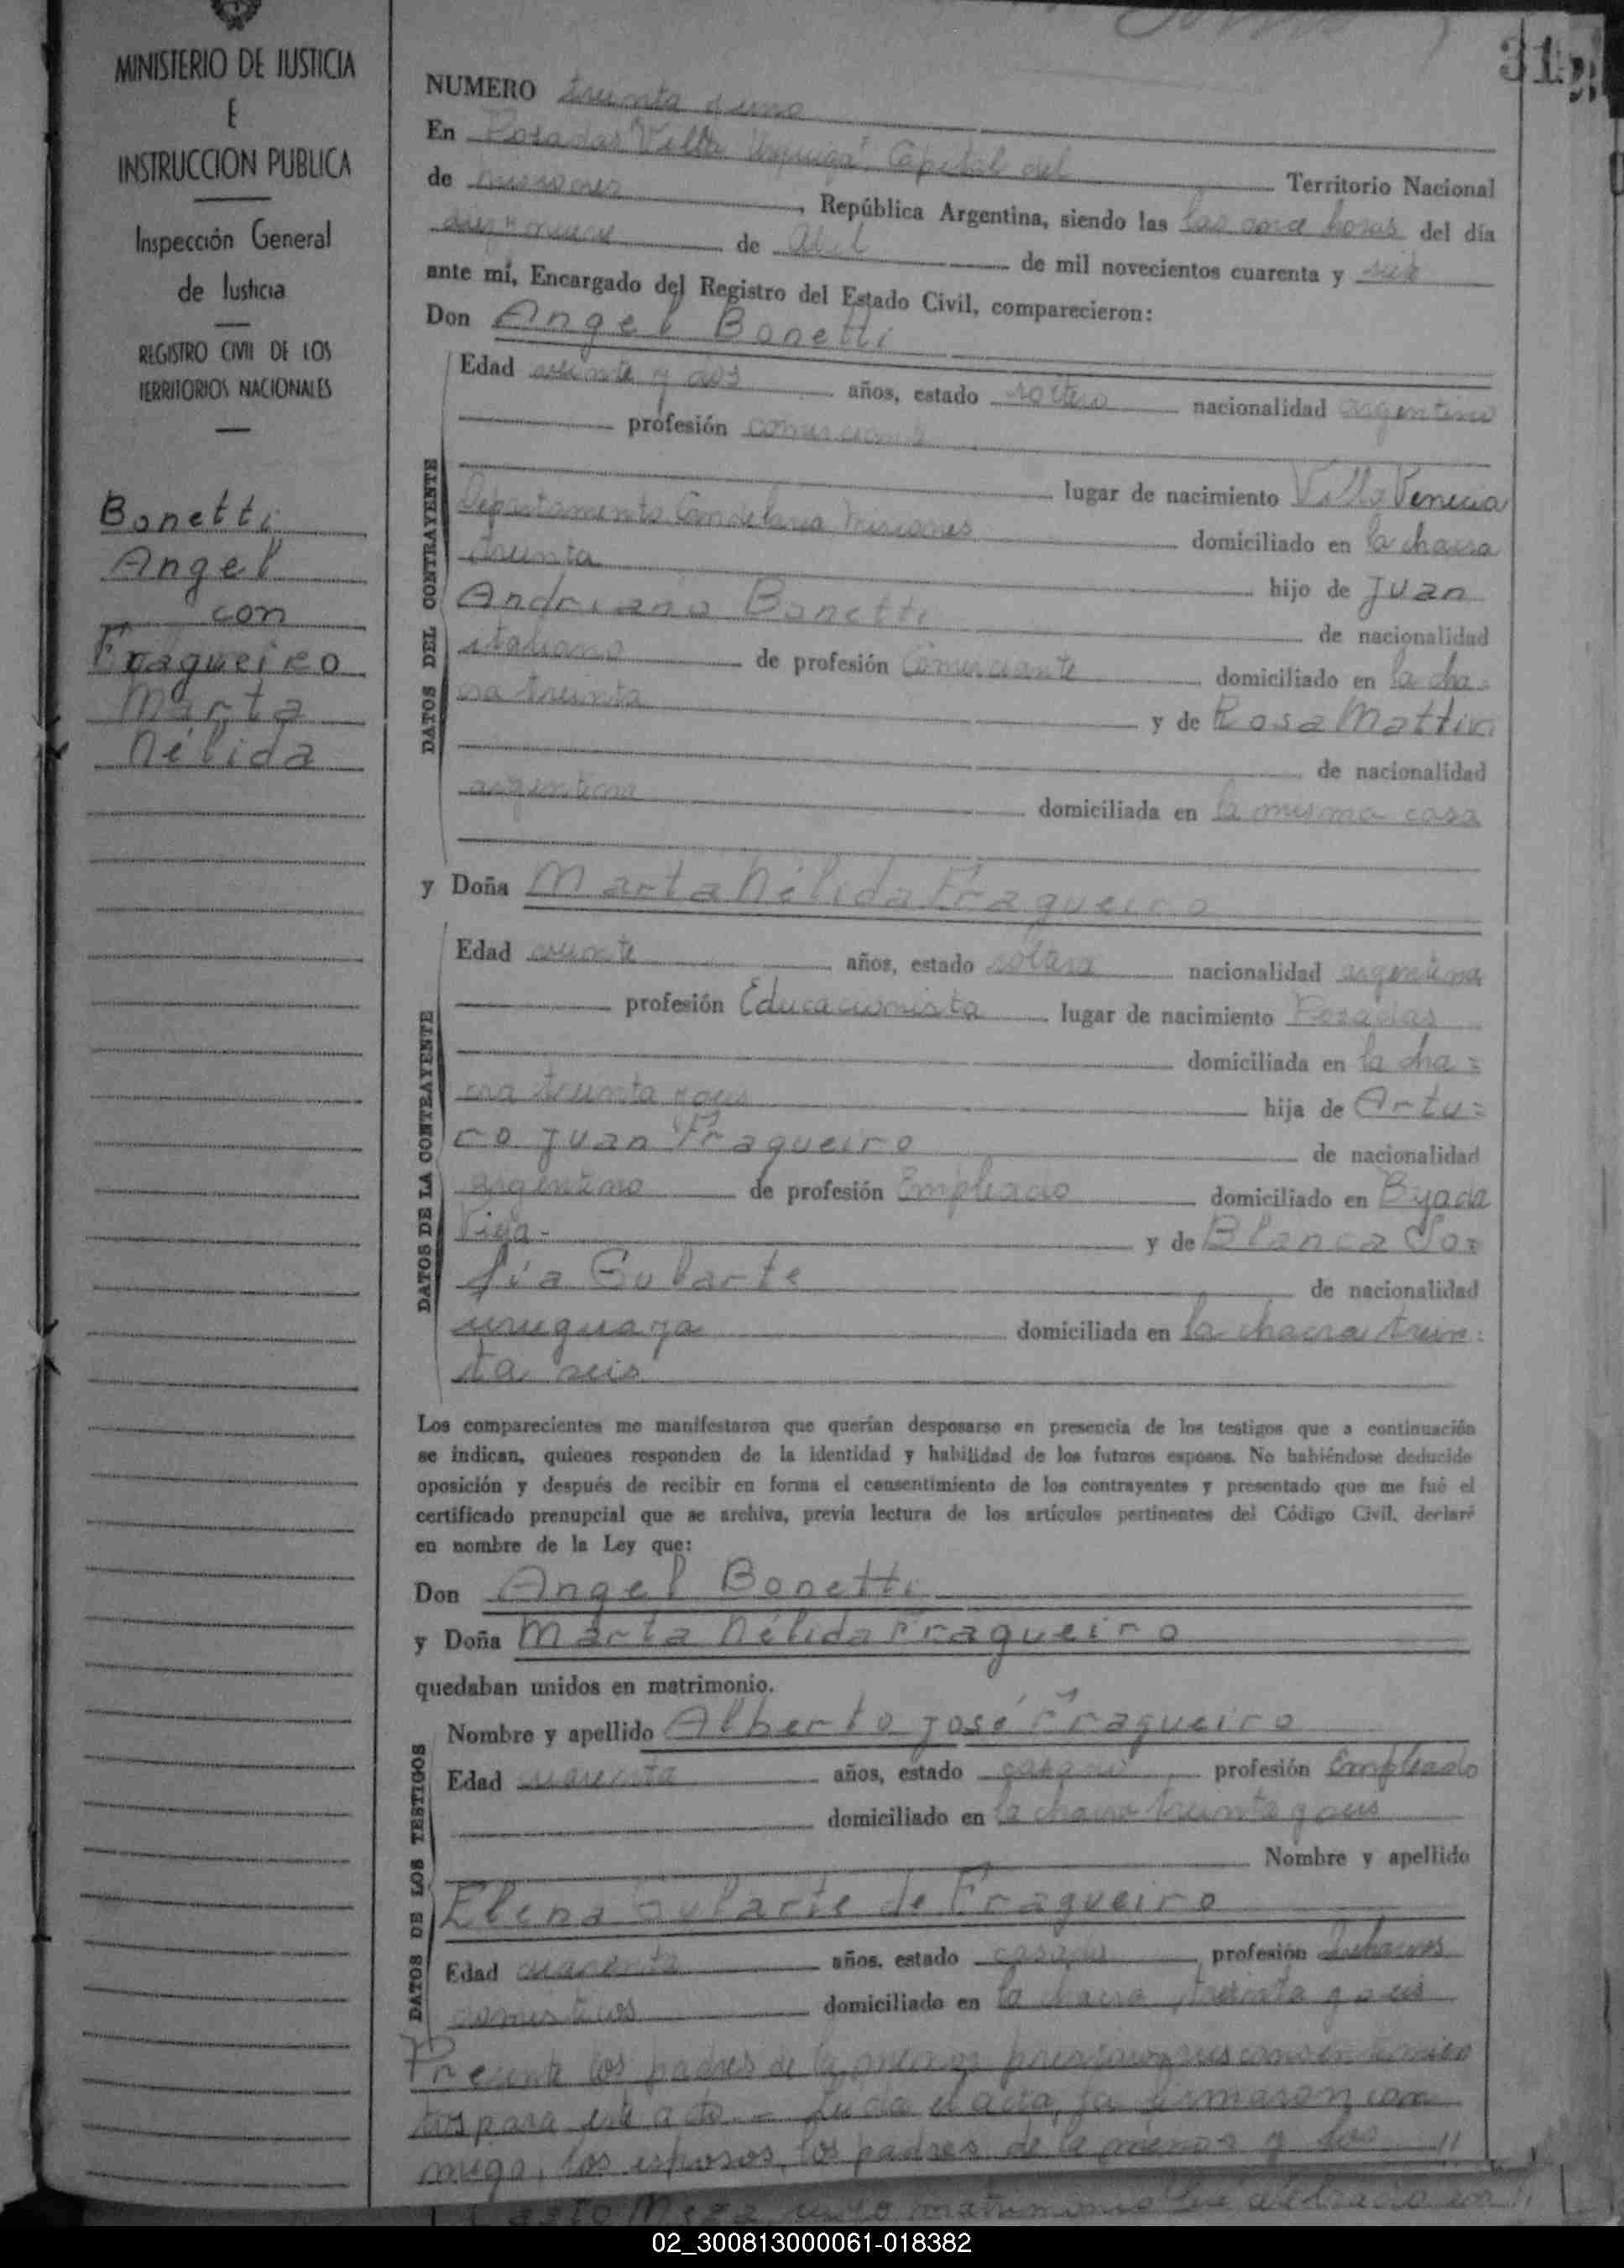 MINISTERIO DE JUSTICIA
E
INSTRUCCION PUBLICA
Inspección General
de Justicia
REGISTRO CIVIL DE LOS
TERRITORIOS NACIONALES
Bonetti
Angel
con
Fragueiro
Marta
Nélida
31
NUMERO treinta y uno
En Posadas "Villa Urquiza" Capital del Territorio Nacional
de Misiones, República Argentina, siendo las las once horas del día
diez y nueve de Abril de mil novecientos cuarenta y seis
ante mí, Encargado del Registro del Estado Civil, comparecieron:
Don Angel Bonetti
DATOS DEL CONTRAYENTE
Edad veinte y dos años, estado soltero nacionalidad argentino
profesión comerciante
lugar de nacimiento Villa Venecia
Departamento Candelaria Misiones domiciliado en la chacra
treinta hijo de Juan
Andriano Bonetti de nacionalidad
italiano de profesión Comerciante domiciliado en la cha=
cra treinta y de Rosa
de nacionalidad
argentina domiciliada en la misma casa
y Doña Marta Nélida Fragueiro
DATOS DE LA CONTRAYENTE
Edad veinte años, estado soltera nacionalidad argentina
profesión Educacionista lugar de nacimiento Posadas
domiciliada en la cha=
cra treinta y seis hija de Artu=
ro Juan Fragueiro de nacionalidad
argentino de profesión Empleado domiciliado en
Vieja- y de Blanca So=
fía Gularte de nacionalidad
uruguaya domiciliada en la chacra trein=
ta seis
Los comparecientes me manifestaron que querían desposarse en presencia de los testigos que a continuación
se indican, quienes responden de la identidad y habilidad de los futuros esposos. No habiéndose deducido
oposición y después de recibir en forma el consentimiento de los contrayentes y presentado que me fué el
certificado prenupcial que se archiva, previa lectura de los artículos pertinentes del Código Civil, declaré
en nombre de la Ley que:
Don Angel Bonetti
y Doña Marta Nélida Fragueiro
quedaban unidos en matrimonio.
DATOS DE LOS TESTIGOS
Nombre y apellido Alberto José Fragueiro
Edad cuarenta años, estado casado profesión Empleado
domiciliado en la chacra treinta y seis
Nombre y apellido
Elena Gularte de Fragueiro
Edad cuarenta años, estado casada profesión quehaceres
domesticos domiciliado en la chacra treinta y seis
Presente los padres de la menor prestaron sus consentimien
tos para este acto.- Leida el acta, la firmaron con
migo, los esposos, los padres de la menor y los
matrimonio
02_300813000061-018382